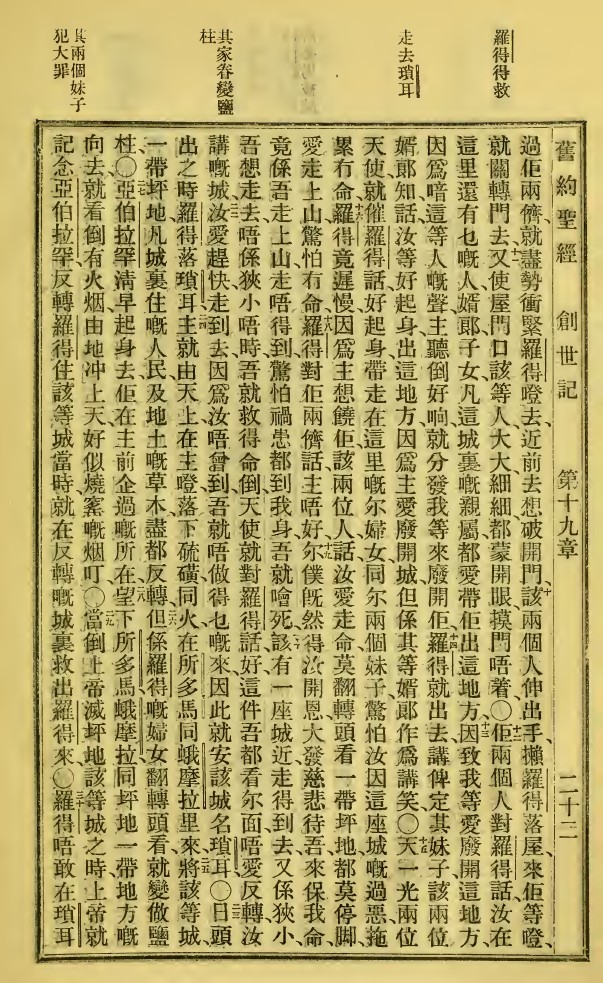 羅得得救
走去瑣耳
其家眷變鹽
柱
其兩個妹子
犯大罪
舊約聖經 創世記 第十九章 二十三
過佢兩儕、就盡勢衝緊羅得噔去、近前去想破開門、該兩個人伸出手、攋羅得落屋來佢等噔、
就關轉門去、又使屋門口該等人、大大細細都蒙開眼、摸門唔着〇佢兩個人對羅得話、汝在
這里還有乜嘅人、婿郞子女、凡這城裏嘅親屬、都愛帶佢出這地方、因致我等愛廢開這地方、
因爲喑這等人嘅聲、主聽倒好响、就分發我等來廢開佢、羅得就出去講俾定其妹子該兩位
婿郞知、話、汝等好起身出這地方、因爲主愛廢開城、但係其等婿郞作爲講笑〇天一光、兩位
天使就催羅得、話、好起身帶走在這里嘅尔婦女同尔兩個妹子、驚怕汝因這座城嘅過惡拖
累冇命、羅得竟遲慢、因爲主想饒佢、該兩位人、話、汝愛走命、莫翻轉頭看、一帶坪地都莫停脚、
愛走上山、驚怕冇命、羅得對佢兩儕話、主、唔好、尔僕旣然得汝開恩、大發慈悲待吾、來保我命、
竟係吾走上山、走唔得到、驚怕禍患都到我身、吾就噲死、該有一座城近走得到去、又係狹小、
吾想走去、唔係狹小唔時、吾就救得命倒、天使就對羅得話、好、這件吾都看尔面、唔愛反轉汝
講嘅城、汝愛趕快走到去、因爲汝唔曾到、吾就唔做得乜嘅來、因此就安該城名瑣耳〇日頭
出之時、羅得落瑣耳、主就由天上在主噔落下硫磺同火、在所多馬同蛾摩拉里、來將該等城、
一帶坪地、凡城裏住嘅人民及地土嘅草木、盡都反轉、但係羅得嘅婦女翻轉頭看、就變做鹽
柱〇亞伯拉罕清早起身、去佢在主前企過嘅所在、望下所多馬蛾摩拉同坪地一帶地方嘅
向去、就看倒有火烟由地冲上天、好似燒窰嘅烟叮〇當倒上帝滅坪地該等城之時、上帝就
記念亞伯拉罕、反轉羅得住該等城當時、就在反轉嘅城裏救出羅得來〇羅得唔敢在瑣耳